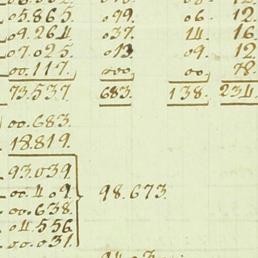 05.865. 099. 06. 12.
09.264 037. 14. 16
07.025. 013. 09. 12.
00.117. 000. 00. 78.
73.537 683. 138. 234.
00.683.
18.819.
93.039
00.409 98.673.
00.638.
04.556
00.031.